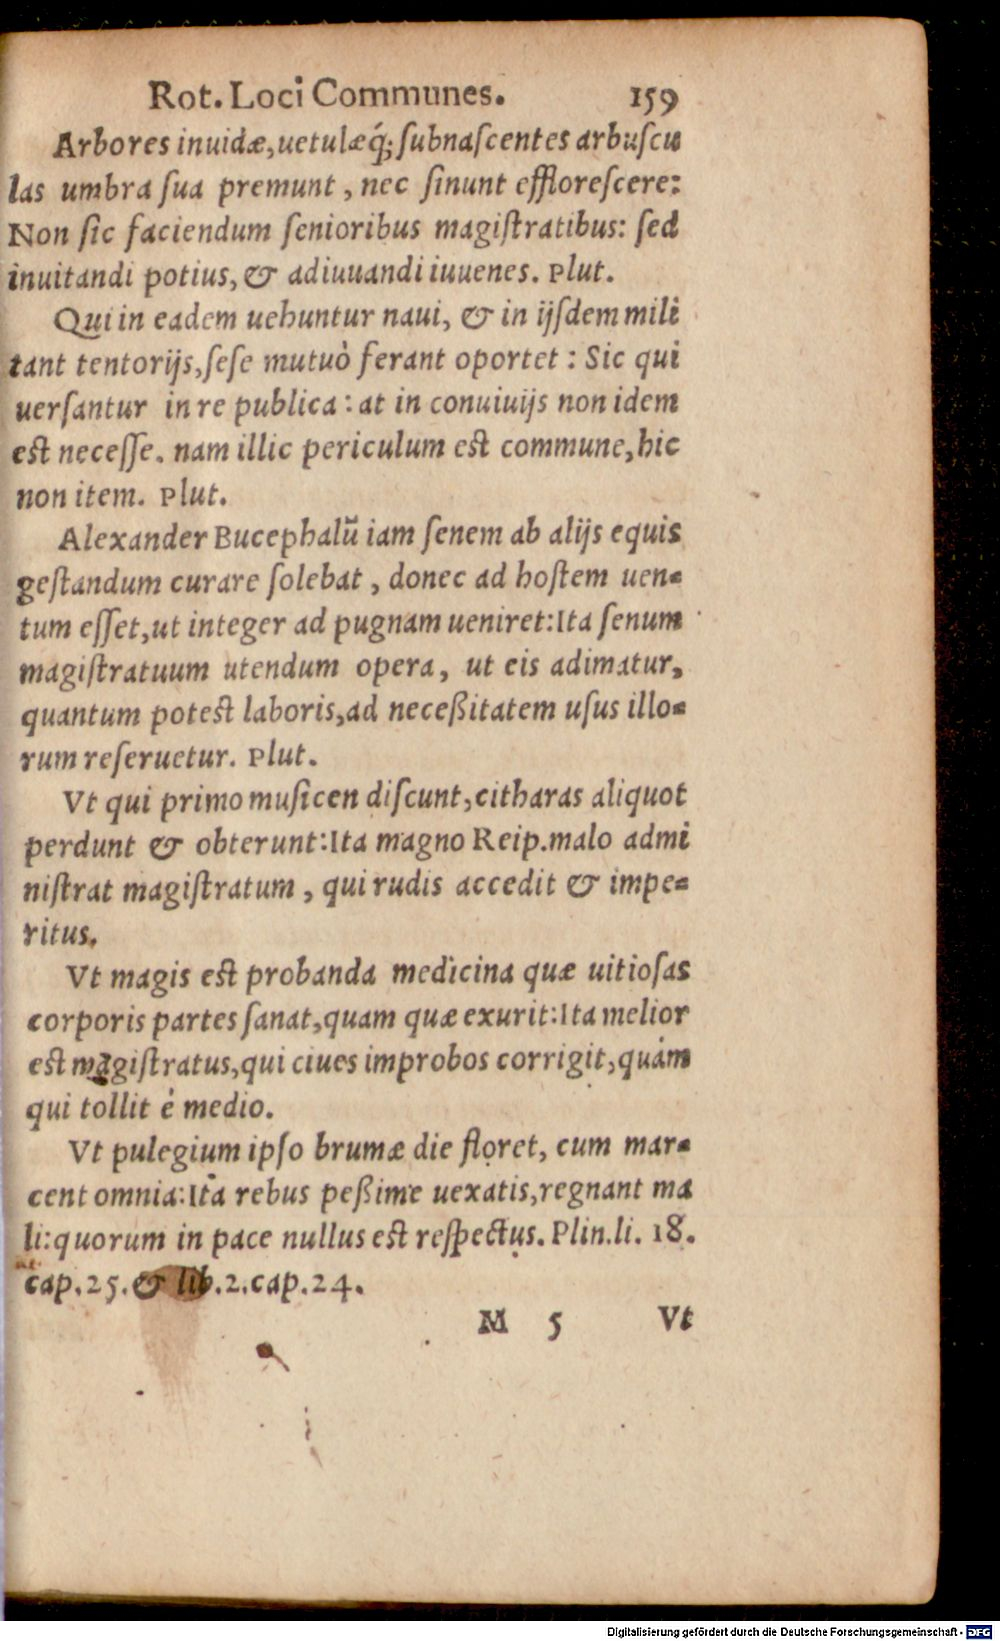 Rot. Loci Communes. 159
Arbores inuidæ, uetulæq́; ſubnaſcentes arbuſcu
las umbra ſua premunt, nec ſinunt effloreſcere:
Non ſic faciendum ſenioribus magiſtratibus: ſed
inuitandi potius, & adiuuandi iuuenes. Plut.
Qui in eadem uehuntur naui, & in ijſdem mili
tant tentorijs, ſeſe mutuò ferant oportet: Sic qui
uerſantur in re publica: at in conuiuijs non idem
est neceſſe. nam illic periculum est commune, hic
non item. Plut.
Alexander Bucephalū iam ſenem ab alijs equis
geſtandum curare ſolebat, donec ad hoſtem uen-
tum eſſet, ut integer ad pugnam ueniret: Ita ſenum
magiſtratuum utendum opera, ut eis adimatur,
quantum potest laboris, ad neceßitatem uſus illo-
rum reſeruetur. Plut.
Vt qui primo muſicen diſcunt, citharas aliquot
perdunt & obterunt: Ita magno Reip. malo admi
niſtrat magiſtratum, qui rudis accedit & impe-
ritus.
Vt magis est probanda medicina quæ uitioſas
corporis partes ſanat, quam quæ exurit: Ita melior
est magiſtratus, qui ciues improbos corrigit, quàm
qui tollit è medio.
Vt pulegium ipſo brumæ die floret, cum mar-
cent omnia: Ita rebus peßime uexatis, regnant ma
li: quorum in pace nullus est reſpectus. Plin. li. 18.
cap. 25. & lib. 2. cap. 24.
M 5 Vt
Digitalisierung gefördert durch die Deutsche Forschungsgemeinschaft - DFG